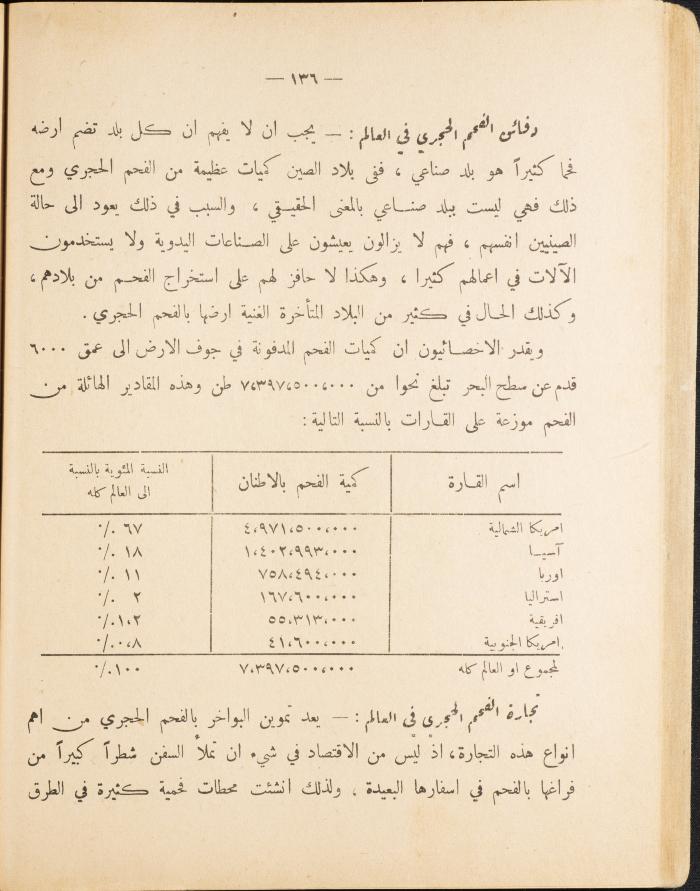 — ١٣٦ —
دفائن الفحم الحجري في العالم : — يجب ان لا يفهم ان كل بلد تضم ارضه
فحما كثيراً هو بلد صناعي ، ففي بلاد الصين كميات عظيمة من الفحم الحجري ومع
ذلك فهي ليست ببلد صناعي بالمعنى الحقيقي ، والسبب في ذلك يعود الى حالة
الصينيين انفسهم ، فهم لا يزالون يعيشون على الصناعات اليدوية ولا يستخدمون
الآلات في اعمالهم كثيرا ، وهكذا لا حافز لهم على استخراج الفحم من بلادهم ،
وكذلك الحال في كثير من البلاد المتأخرة الغنية ارضها بالفحم الحجري .
ويقدر الاخصائيون ان كميات الفحم المدفونة في جوف الارض الى عمق ٦٠٠٠
قدم عن سطح البحر تبلغ نحوا من ٧،٣٩٧،٥٠٠،٠٠٠ طن وهذه المقادير الهائلة من
الفحم موزعة على القارات بالنسبة التالية :
اسم القارة كمية الفحم بالاطنان النسبة المئوية بالنسبة
الى العالم كله
امريكا الشمالية ٤،٩٧١،٥٠٠،٠٠٠ ٦٧ ٠/٠
آسيا ١،٤٠٢،٩٩٣،٠٠٠ ١٨ ٠/٠
اوربا ٧٥٨،٤٩٤،٠٠٠ ١١ ٠/٠
استراليا ١٦٧،٦٠٠،٠٠٠ ٢ ٠/٠
افريقية ٥٥،٣١٣،٠٠٠ ١،٢ ٠/٠
امريكا الجنوبية ٤١،٦٠٠،٠٠٠ ٠،٨ ٠/٠
لمجموع او العالم كله ٧،٣٩٧،٥٠٠،٠٠٠ ١٠٠ ٠/٠
تجارة الفحم الحجري في العالم : — يعد تموين البواخر بالفحم الحجري من اهم
انواع هذه التجارة ، اذ ليس من الاقتصاد في شيء ان تملأ السفن شطراً كبيراً من
فراغها بالفحم في اسفارها البعيدة . ولذلك انشئت محطات فحمية كثيرة في الطرق